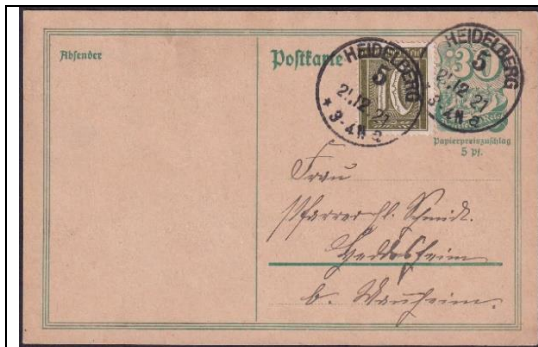 Absender
Postkarte
HEIDELBERG
5
21.12.21
* 3-4 N a
10
HEIDELBERG
5
21.12.21
* 3-4 N a
30
Papierpreiszuschlag
5 Pf.
Frau
Pfarrer Schmidt.
Heddesheim
b. Weinheim.